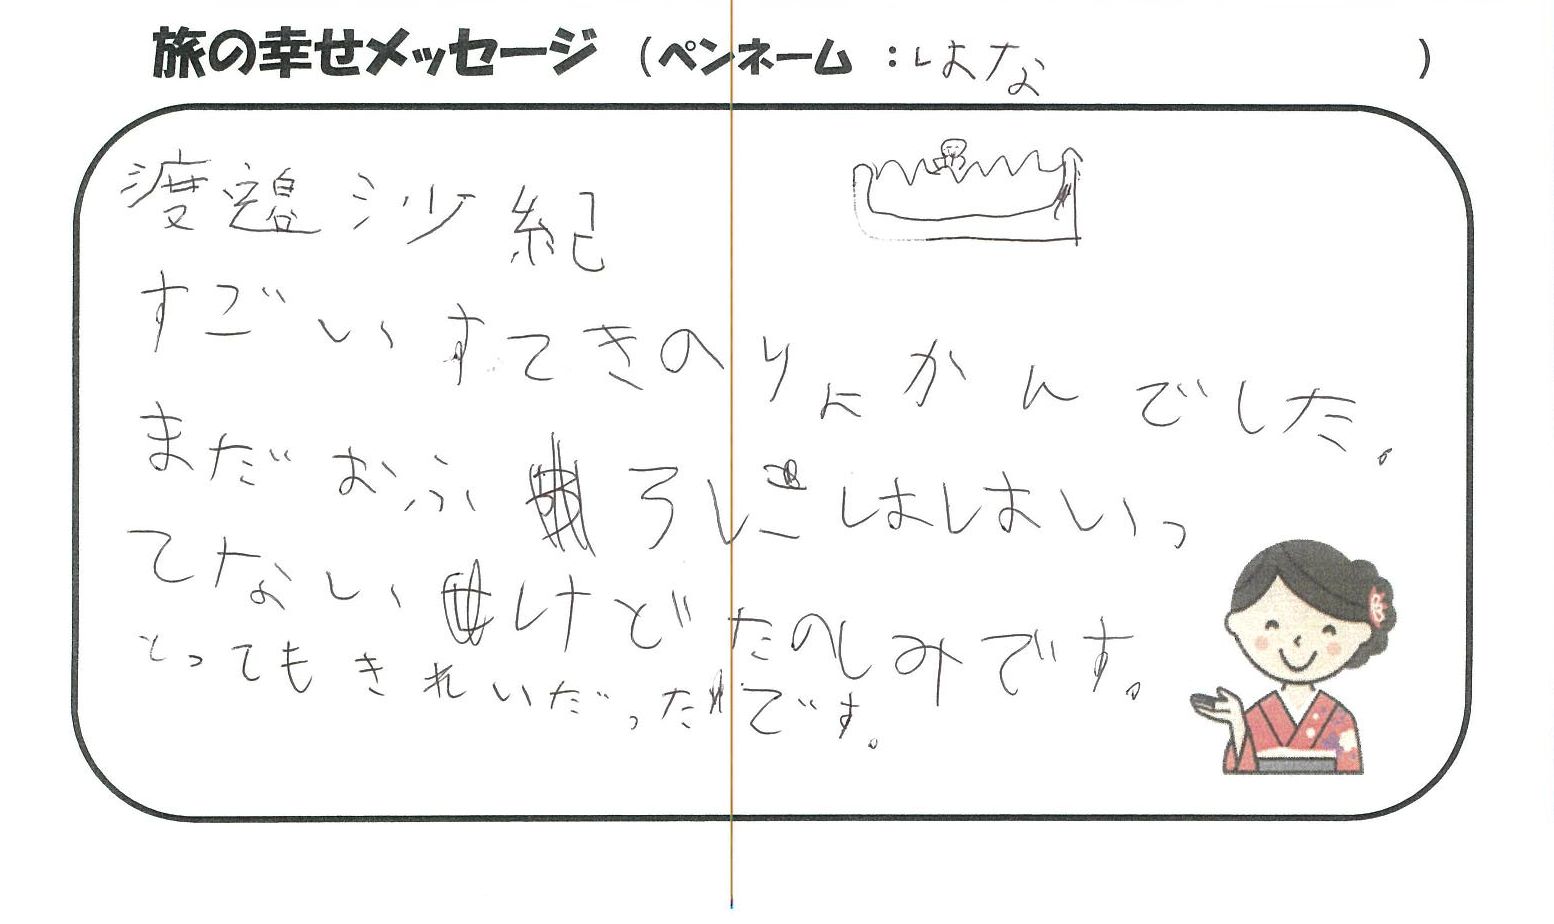 旅の幸せメッセージ （ペンネーム ：はな ）
渡邉沙紀
すごいすてきのりょかんでした。
まだおふろにははいっ
てないけどたのしみです。
とってもきれいだったです。